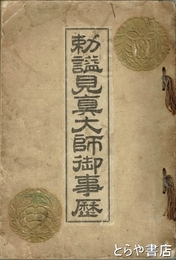 勅諡見真大師御事歴
とらや書店